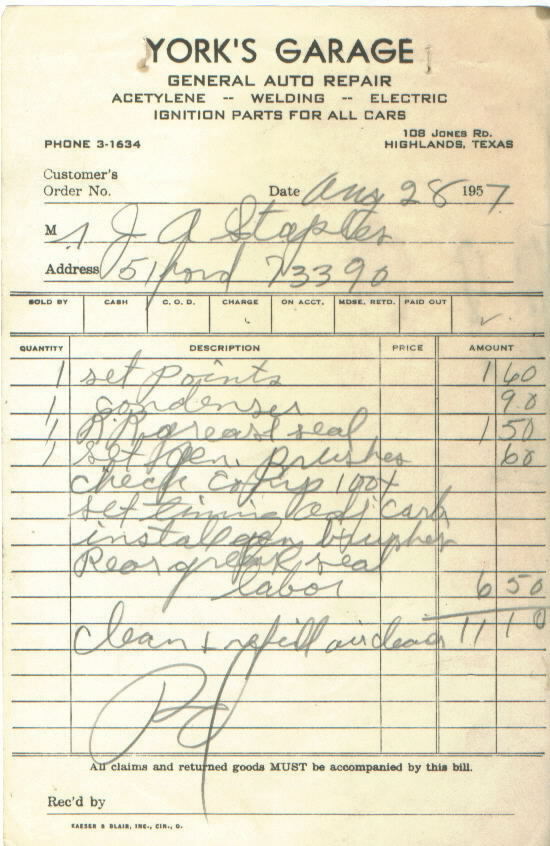 YORK'S GARAGE
GENERAL AUTO REPAIR
ACETYLENE -- WELDING -- ELECTRIC
IGNITION PARTS FOR ALL CARS
PHONE 3-1634
108 JONES RD.
HIGHLANDS, TEXAS
Customer's
Order No. Date Aug 28 1957
M J A Staples
Address 51 Ford 73390
SOLD BY CASH C. O. D. CHARGE ON ACCT. MDSE. RETD. PAID OUT
QUANTITY DESCRIPTION PRICE AMOUNT
1 set points 1 60
1 condenser 90
1 R.R. grease seal 1 50
1 set gen. brushes 60
check
set timing adj carb
install gen brushes
Rear grease seal
labor 6 50
clean + refill air clean 11 10
Pd
All claims and returned goods MUST be accompanied by this bill.
Rec'd by
KAESER & BLAIR, INC., CIN., O.